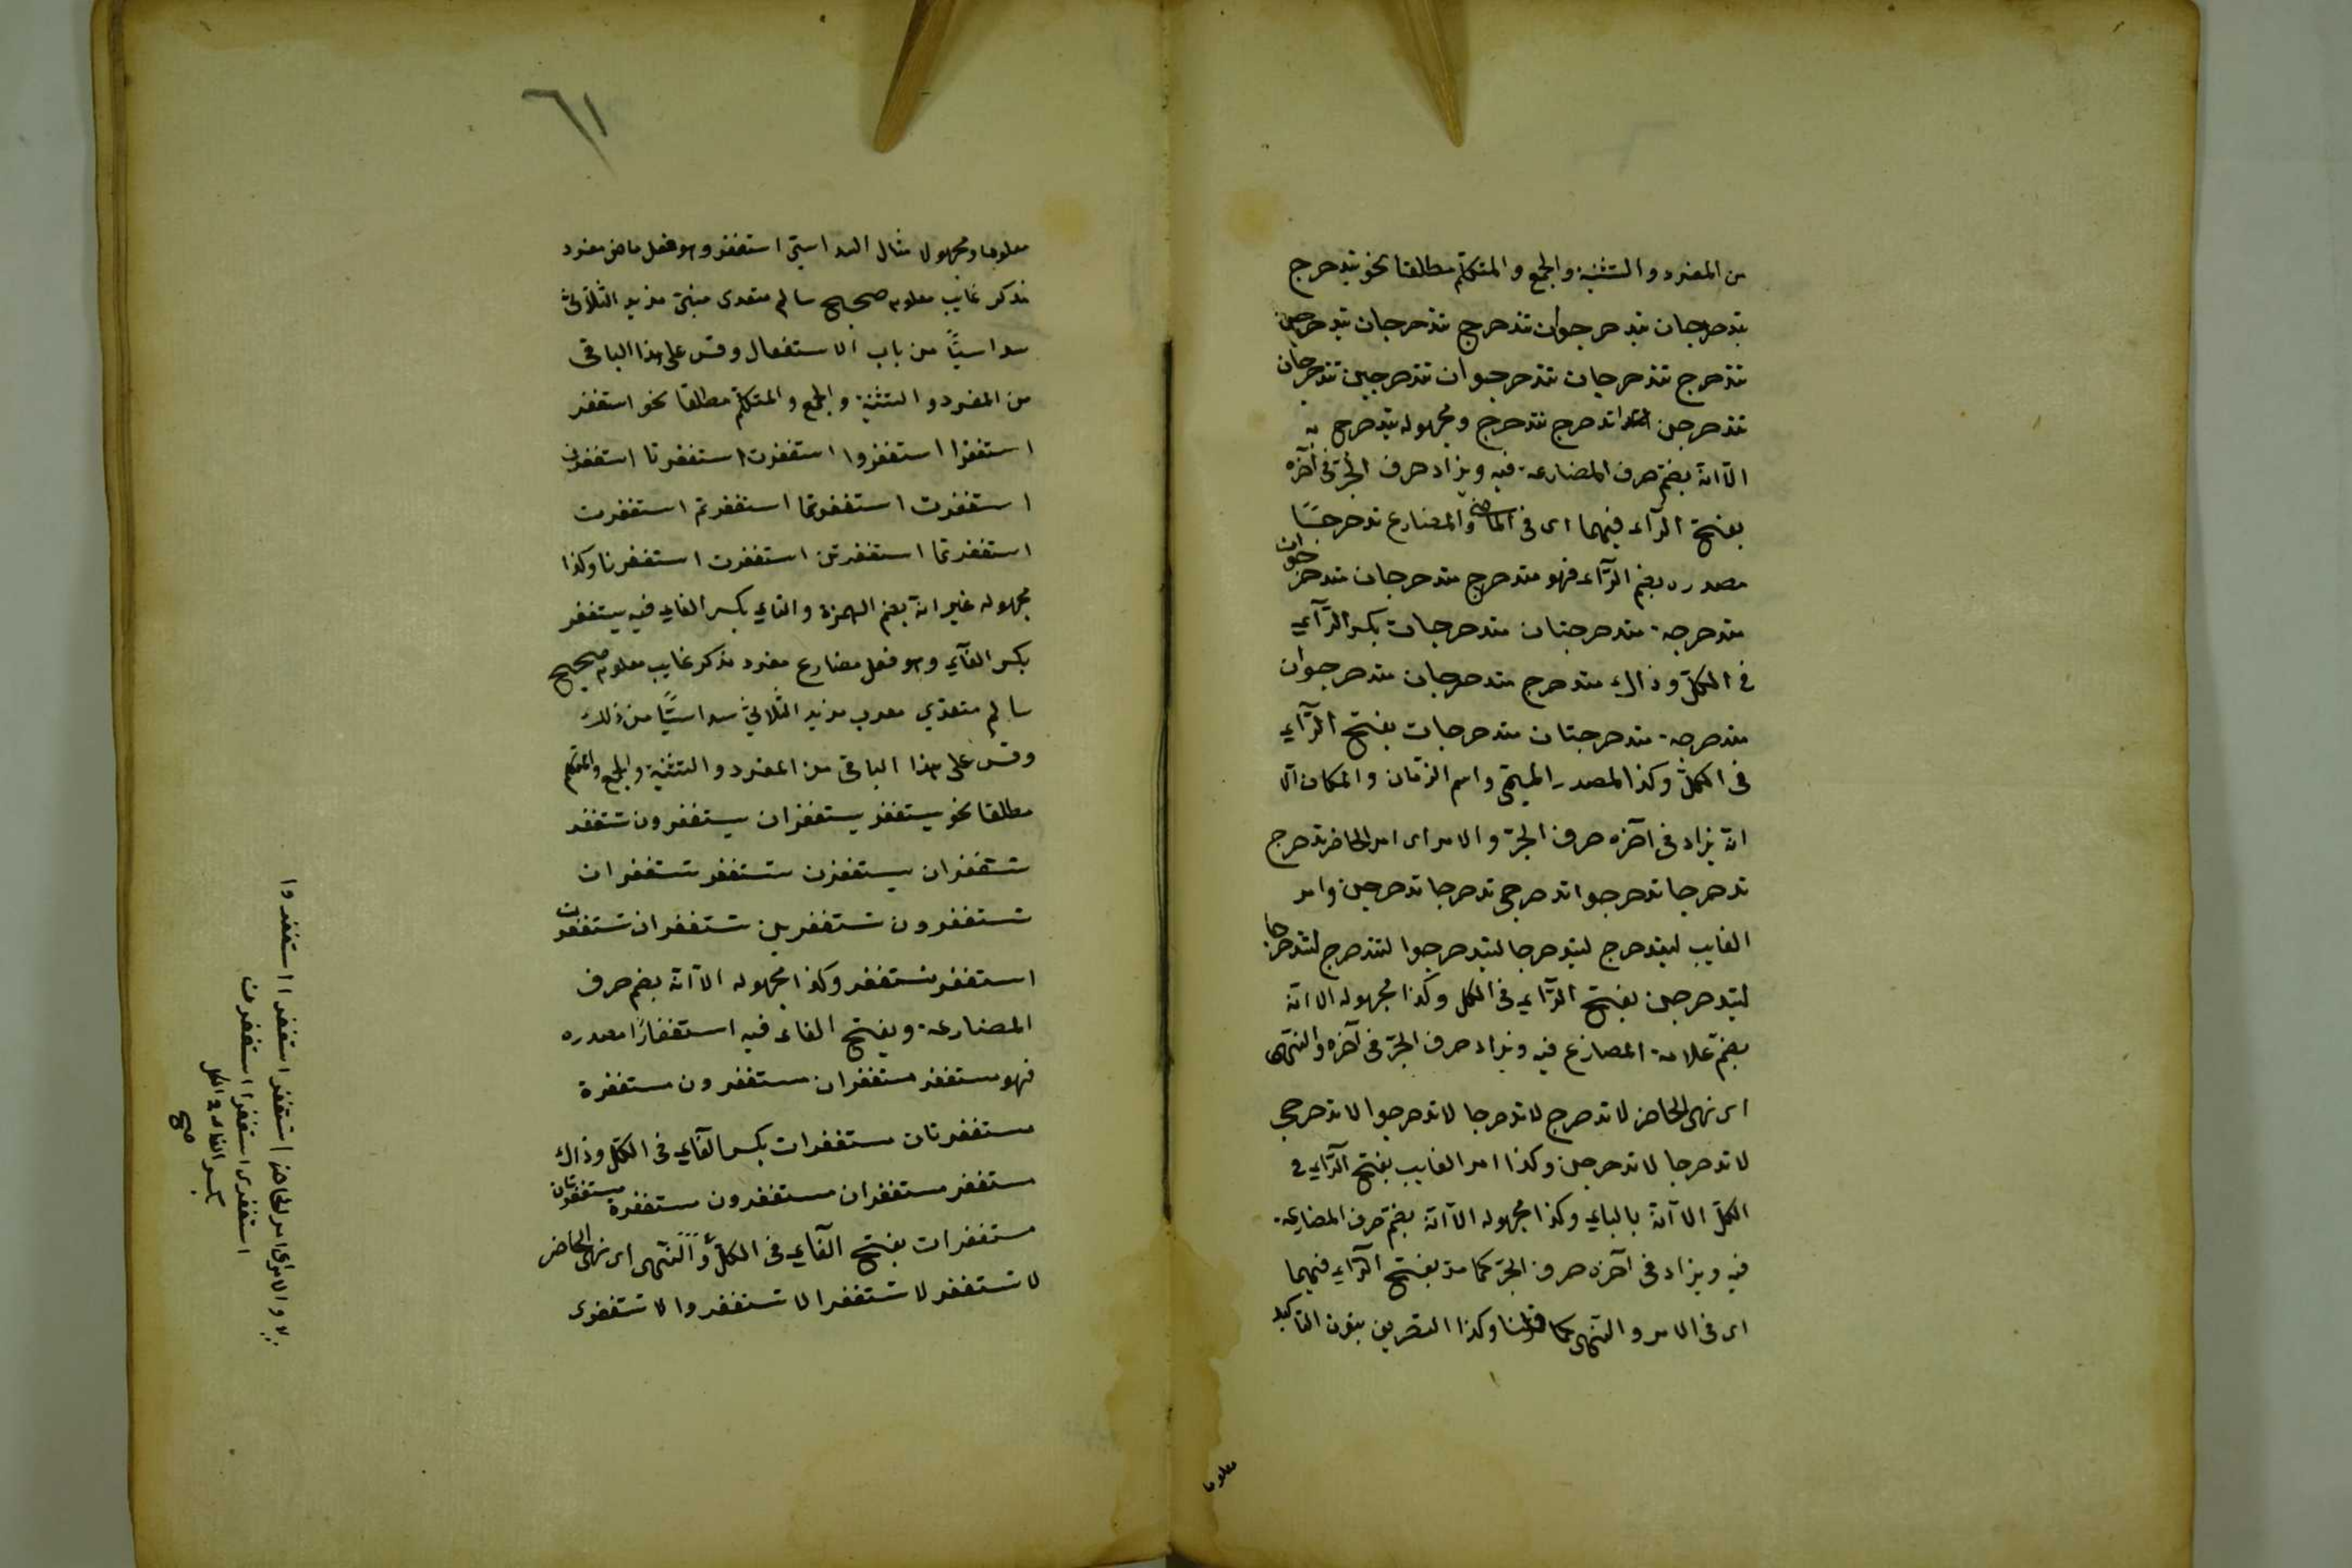 من المفرد والتثنية والجمع والمتكلّم مطلقا نحو يتدحرج
يتدحرجان يتدحرجون تتدحرج تتدحرجان يتدحرجن
تتدحرج تتدحرجان تتدحرجون تتدحرجين تتدحرجان
تتدحرجن اتدحرج نتدحرج ومجهوله يتدحرج به
الّا انّه بضمّ حرف المضارعة فيه ويزاد حرف الجرّ فى آخره
بفتح الرّاء فيهما اى فى الماضى والمضارع تدحرجًا
مصدره بضم الرّاء فهو متدحرج متدحرجان متدحرجون
متدحرجة متدحرجتان متدحرجات بكسر الرّاء
فى الكلّ وذاك متدحرج متدحرجان متدحرجون
متدحرجة متدحرجتان متدحرجات بفتح الرّاء
فى الكلّ وكذا المصدر الميمّى واسم الزمان والمكان الّا
انّه يزاد فى آخره حرف الجرّ والامر اى امر الحاضر تدحرج
تدحرجا تدحرجوا تدحرجى تدحرجا تدحرجن وامر
الغايب ليتدحرج ليتدحرجا ليتدحرجوا لتتدحرج لتتدحرجا
ليتدحرجن بفتح الرّاء فى الكل وكذا مجهوله الّا انّه
بضمّ علامة المضارع فيه ويزاد حرف الجرّ فى آخره والنّهى
اى نهى الحاضر لا تدحرج لا تدحرجا لا تدحرجوا لا تدحرجى
لا تدحرجا لا تدحرجن وكذا امر الغايب بفتح الرّاء فى
الكلّ الّا انّه بالياء وكذا مجهوله الّا انّه بضمّ حرف المضارعة
فيه ويزاد فى آخره حرف الجرّ كما مرّ بفتح الرّاء فيهما
اى فى الامر والنّهى كما قلنا وكذا التصريف بنون التأكيد
معلوما
٦١
معلوما ومجهولا مثال السداسىّ استغفر وهو فعل ماض مفرد
مذكر غايب معلوم صحيح سالم متعدى مبنىّ مزيد الثلاثىّ
سداسيًّا من باب الاستفعال وقس على هذا الباقى
من المفرد والتثنية والجمع والمتكلّم مطلقا نحو استغفر
استغفرا استغفروا استغفرت استغفرتا استغفرن
استغفرت استغفرتما استغفرتم استغفرت
استغفرتما استغفرتن استغفرت استغفرنا وكذا
مجهوله غير انّه بضم الهمزة والتاء بكسر الفاء فيه يستغفر
بكسر الفاء وهو فعل مضارع مفرد مذكر غايب معلوم صحيح
سالم متعدّى معرب مزيد الثلاثىّ سداسيًّا من ذلك
وقس على هذا الباقى من المفرد والتثنية والجمع والمتكلم
مطلقا نحو يستغفر يستغفران يستغفرون تستغفر
تستغفران يستغفرن تستغفر تستغفران
تستغفرون تستغفرين تستغفران تستغفرن
استغفر نستغفر وكذا مجهوله الّا انّه بضم حرف
المضارعة وبفتح الفاء فيه استغفارًا مصدره
فهو مستغفر مستغفران مستغفرون مستغفرة
مستغفرتان مستغفرات بكسر الفاء فى الكلّ وذاك
مستغفر مستغفران مستغفرون مستغفرة مستغفرتان
مستغفرات بفتح الفاء فى الكلّ والنّهى اى نهى الحاضر
لا تستغفر لا تستغفرا لا تستغفروا لا تستغفرى
والامر اى امر الحاضر استغفر استغفرا استغفروا
استغفرى استغفرا استغفرن
بكسر الفاء فى الكل
صح